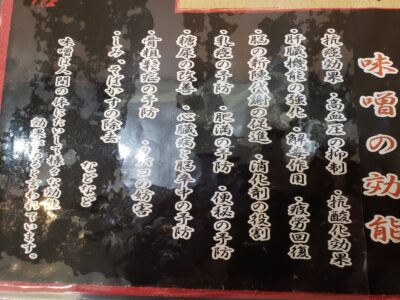 味噌の効能
・抗癌効果 ・高血圧の抑制 ・抗酸化効果
・肝臓機能の強化 ・解毒作用 ・疲労回復
・脳の新陳代謝の促進 ・消化剤の役割
・乳癌の予防 ・肥満の予防 ・便秘の予防
・糖尿の改善 ・心臓病と脳卒中の予防
・骨粗鬆症の予防 ・タバコの妨害
・しみ、そばかすの除去
などなど
味噌は人間の体において様々な効能
効果があると言われています。